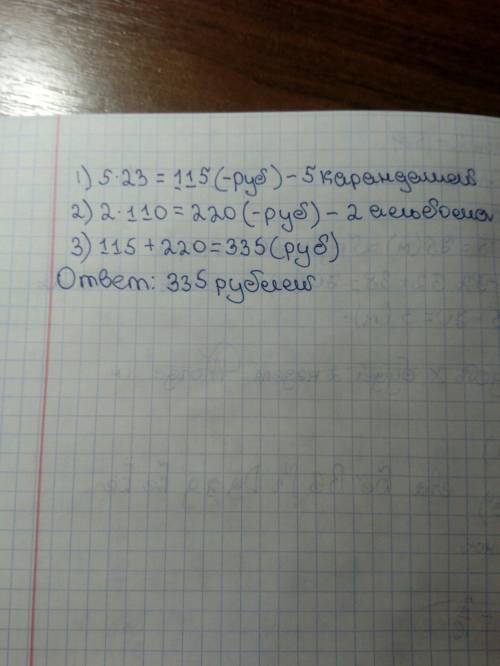 1) 5·23 = 115(-руб) - 5 карандашей
2) 2·110 = 220(-руб) - 2 альбома
3) 115 + 220 = 335(руб)
Ответ: 335 рублей